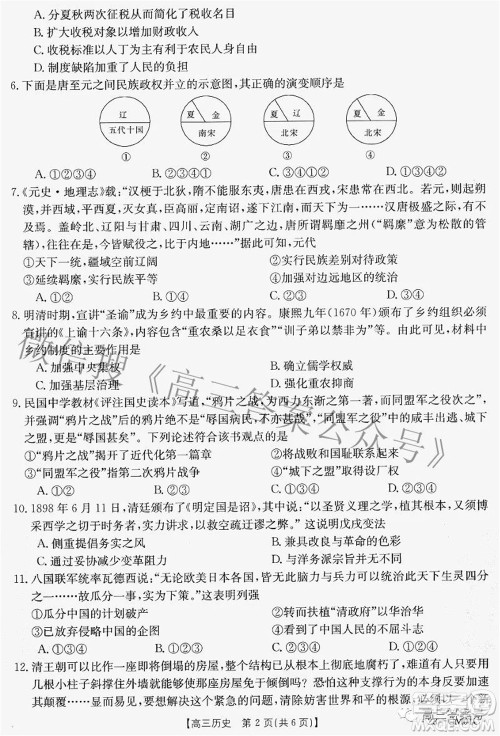 A. 分夏秋两次征税从而简化了税收名目
B. 扩大收税对象以增加税收收入
C. 放松对农民的控制有利于农民人身自由
D. 制度缺陷加重工农民的负担
6. 下面是唐至元之间民族政权并立的示意图，其正确的演变顺序是
辽 五代十国 ①
夏 金 南宋 ②
夏 金 北宋 ③
夏 辽 北宋 ④
A. ①②③④ B. ①③②④ C. ①④②③ D. ①④③②
7. 《元史·地理志》载：“汉梗于北狄，隋不能服东夷，唐患在西戎，宋患常在西北。若元，则起朔
漠，并西域，平西夏，灭女真，臣高丽，定南诏，遂下江南，而天下为一……汉唐极盛之际，有
不及焉。盖岭北、辽阳与甘肃、四川、云南、湖广之边，唐所谓羁縻之州(“羁縻”意为松散的管
辖)，往往在是，今皆赋役之，比于内地……”据此可知，元代
①天下一统，疆域空前辽阔 ②实行民族差别对待政策
③延续羁縻，实行民族自治 ④加强对边远地区的统治
A. ①② B. ①④ C. ②③ D. ③④
8. 明清时期，宣讲“圣谕”成为乡约中最重要的内容。康熙九年(1670年)颁布了各地乡约必须
宣讲的《上谕十六条》，内容包含“重农桑以足衣食”“训子弟以禁非为”等内容，材料中
乡约制度的主要作用是
A. 加强中央集权 B. 确立儒学权威
C. 加强基层治理 D. 强化重农抑商
9. 民国中学教材《评注国史读本》写道，“鸦片之战，为西力东渐之第一著，而同盟军之役次之”，
并强调“鸦片之战”的屈辱外所犹不失为“辱国病民，不亦甚哉”，“同盟军之役”中的咸丰出逃、城
下之盟，更是“辱国甚矣”。下列符合该书观点的是
①“鸦片之战”揭开了近代化第一章 ②将战败和国耻联系起来
③“同盟军之役”指第二次鸦片战争 ④“城下之盟”指《天津条约》
A. ①② B. ①④ C. ②③ D. ③④
10. 1898年6月11日，清廷颁布了《明定国是诏》，其中提出，“以圣贤义理之学，植其根本，又须博
采西学之切于时务者，实力讲求，以救空疏迂谬之弊。”这突出说明戊戌变法
A. 侧重提倡义利之学 B. 兼具保守与革新的色彩
C. 通过妥协减少变革阻力 D. 与洋务派宗旨并无差异
11. 八国联军统率瓦德西说：“无论欧美日本各国，皆无此脑力与兵力可以统治此天下生灵四分
之一，故瓜分一事，实为下策。”这表明列强
①瓜分中国的计划破产 ②扶植“清政府”以华治华
③已放弃侵略中国的野心 ④慑于中国民众的反抗斗争
A. ①②③ B. ①②④ C. ①③④ D. ②③④
12. 清王朝可以比作一座即将倒塌的房屋，整个结构已从根本上彻底地腐朽了，难道有人只要用
几根小柱子斜撑住外墙就能够使那座房屋免于倾倒吗?……显而易见，要想解决这个紧急
的问题，清除妨害世界和平的根源，必须以一个新
高三历史 第2页(共6页)
微信搜《高三答案公众号》